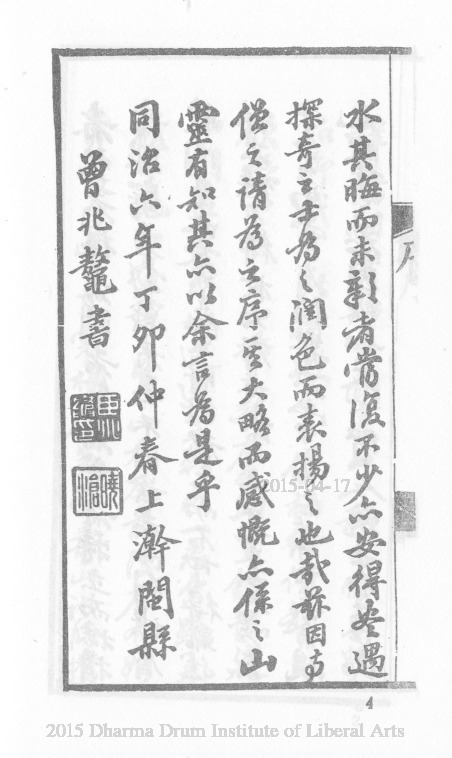 水其晦而未彰者當復不少亦安得盡遇
探奇之士為之潤色而表揚之也哉茲因寺
僧之請為之序其大略而感慨亦係之山
靈有知其亦以余言為是乎
同治六年丁卯仲春上澣閩縣
曾兆鰲書
曉滄
2015-04-17
4
2015 Dharma Drum Institute of Liberal Arts